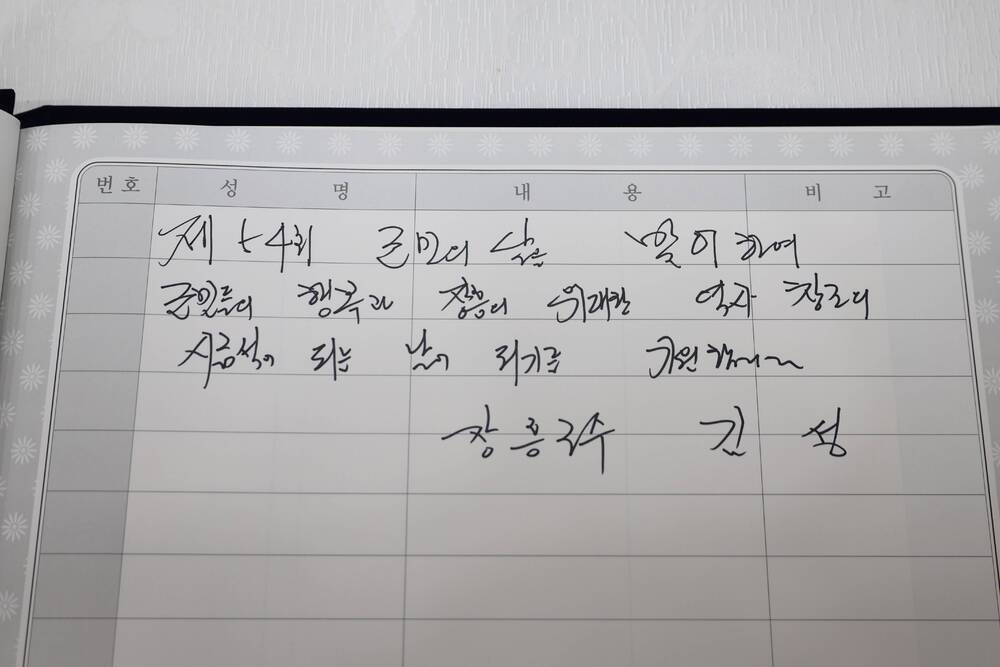 번호 성 명 내 용 비 고
제 54회 군민의 날을 맞이하여
군민들의 행복과 장흥의 위대한 역사 창조의
시금석이 되는 날이 되기를 기원합니다
장흥군수 김 성